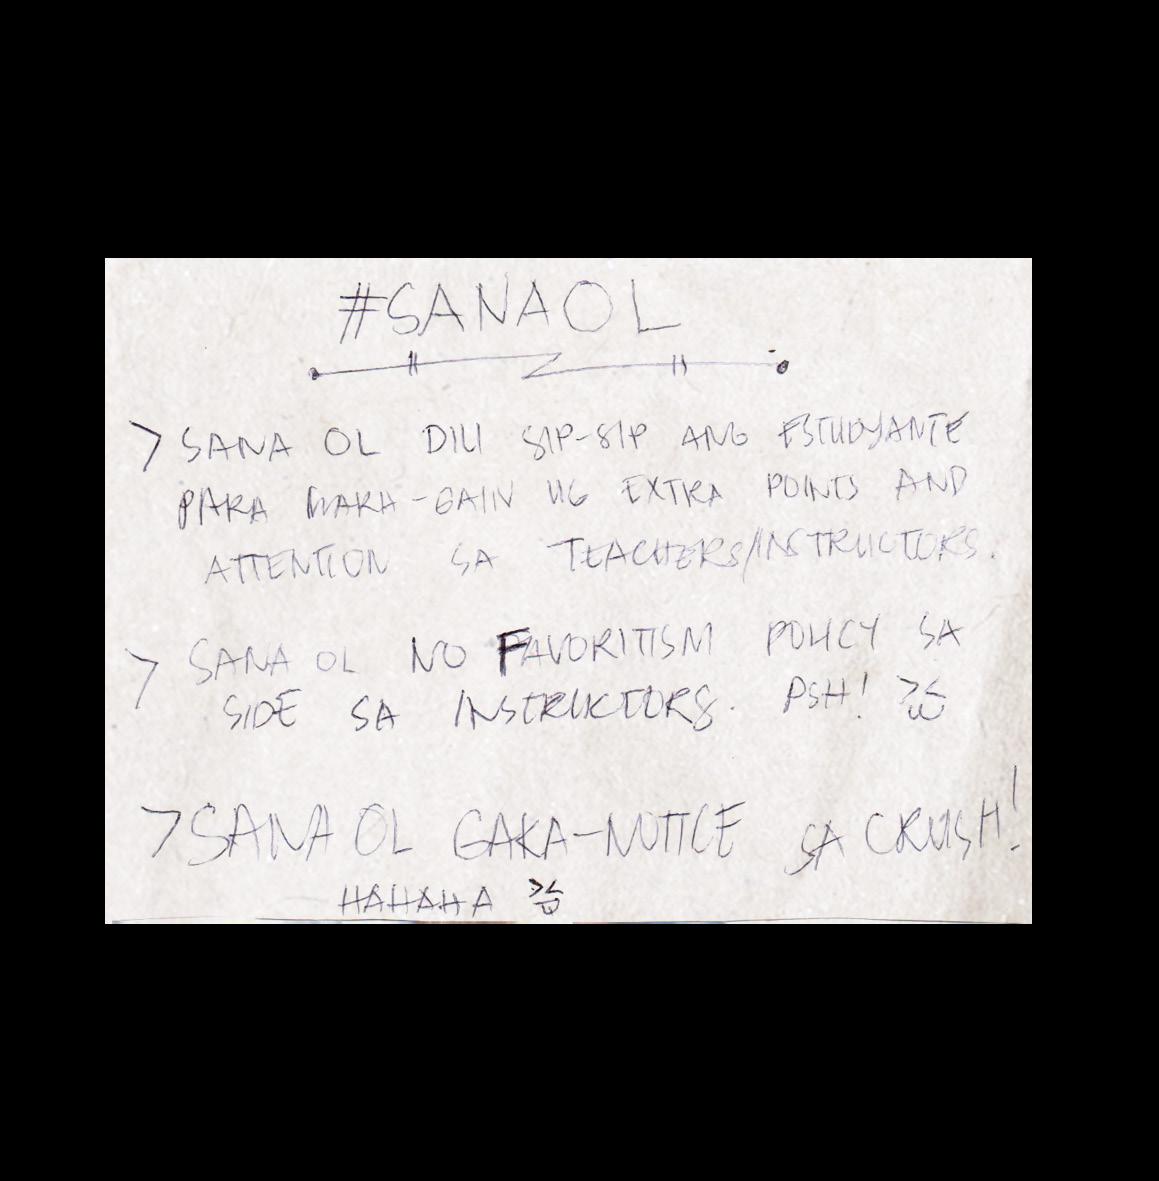 #SANAOL
> SANA OL DILI SIP-SIP ANG ESTUDYANTE
PARA MAKA-GAIN UG EXTRA POINTS AND
ATTENTION SA TEACHERS/INSTRUCTORS.
> SANA OL NO FAVORITISM POLICY SA
SIDE SA INSTRUCTORS. PSH!
> SANA OL GAKA-NOTICE SA CRUSH!
HAHAHA